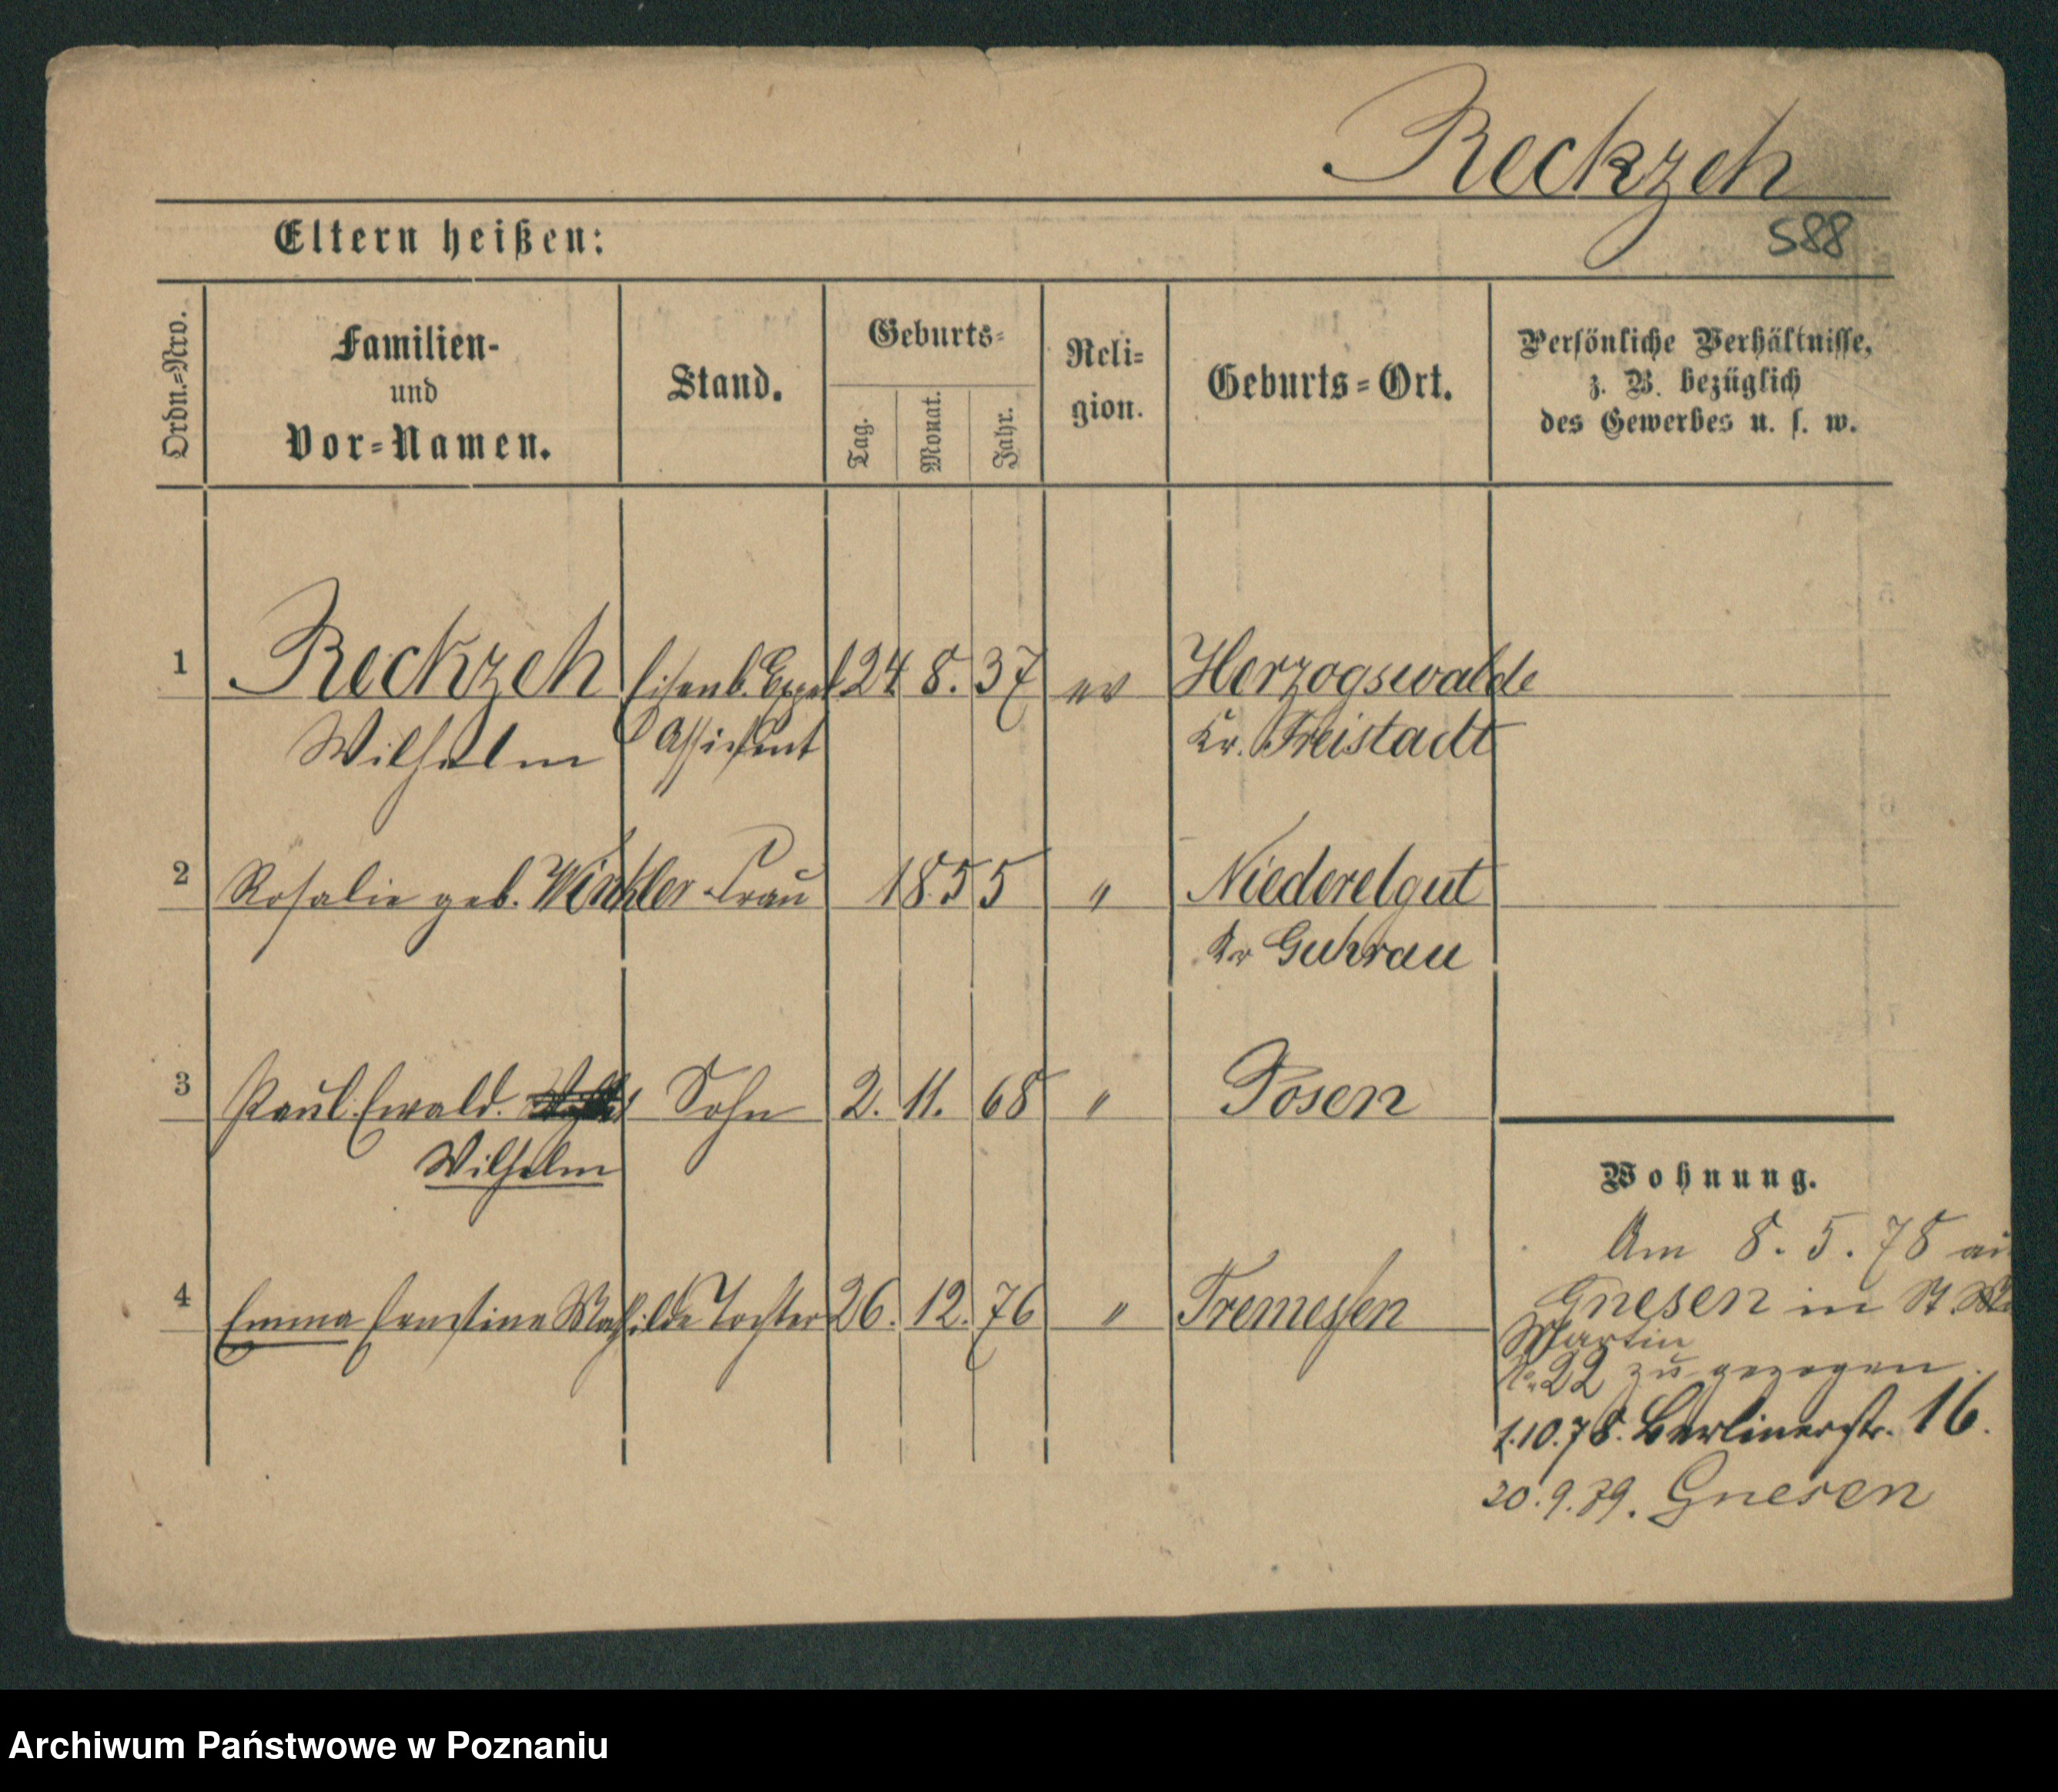 Reckzeh
588
Eltern heißen:
Ordn.=Nro.
Familien-
und
Vor=Namen.
Stand.
Geburts=
Tag.
Monat.
Jahr.
Reli=
gion.
Geburts=Ort.
Persönliche Verhältnisse,
z. B. bezüglich
des Gewerbes u. s. w.
1 Reckzeh Eisenb. Exped 24 8. 37 ev Herzogswalde
Wilhelm Assistent Kr. Freistadt
2 Rosalie geb. Winkler Frau 1855 " Niederelgut
Kr Guhrau
3 Paul Ewald. Sohn 2. 11. 68 " Posen
Wilhelm
Wohnung.
Am 8. 5. 78 au
4 Emma Ernstine Mathilde Tochter 26. 12. 76 " Tremessen
Gnesen in St.
Martin
No 22 zu gezogen.
1.10.78. Berlinerstr. 16.
20.9.79. Gnesen
Archiwum Państwowe w Poznaniu